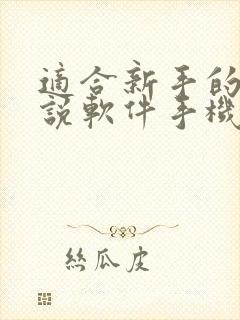 適合新手的
說軟件手機
絲瓜皮